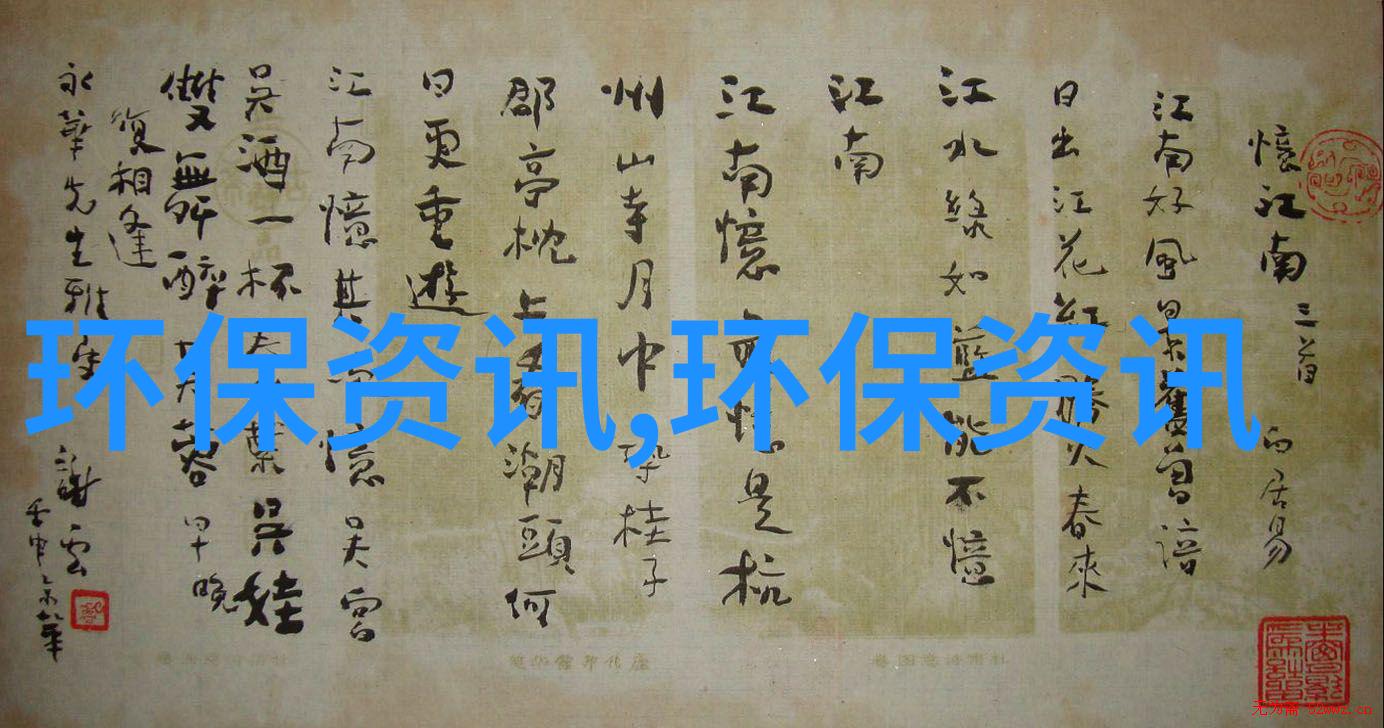 憶江南 三首 白居易
江南好風景舊曾諳
日出江花紅勝火春來
江水綠如藍能不憶
江南
江南憶最憶是杭
州山寺月中尋桂子
郡亭枕上看潮頭何
日更重遊
江南憶其次憶吳宮
吳酒一杯春竹葉吳娃
雙舞醉芙蓉早晚
復相逢
永華先生雅
謝雲
壬申京華
环保资讯,环保资讯
无为斋